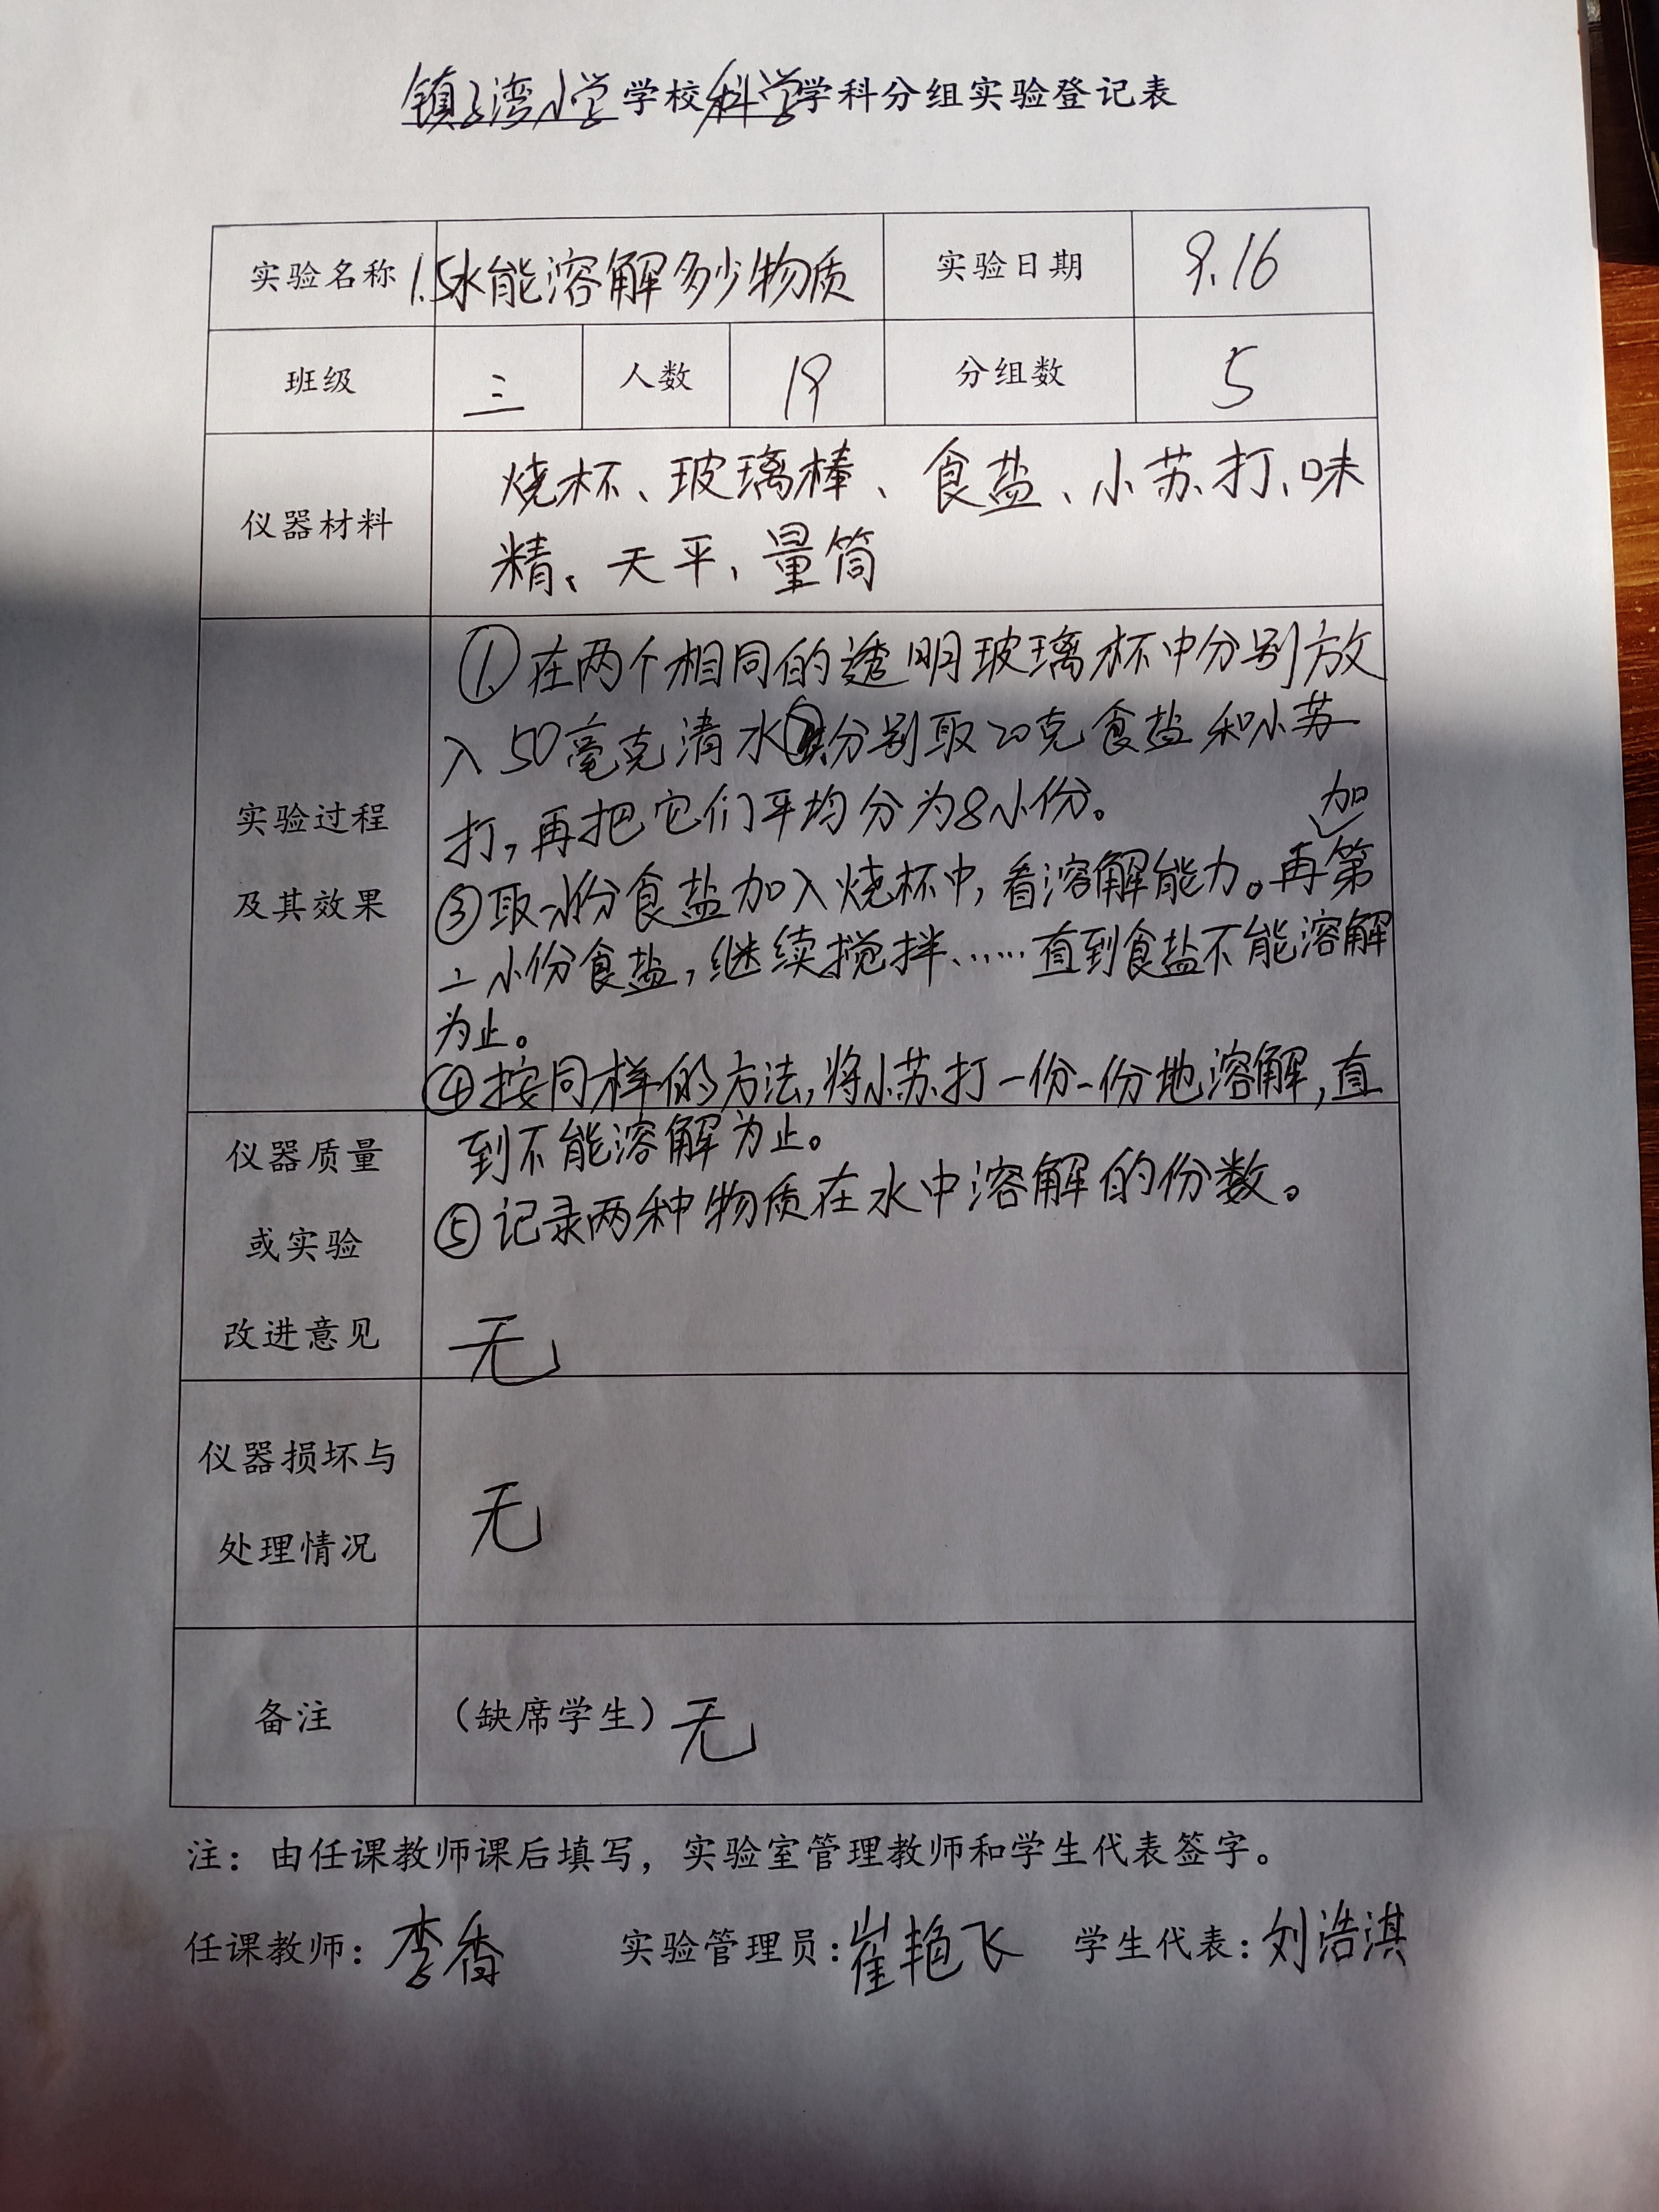 镇子湾小学学校科学学科分组实验登记表
实验名称 1.5水能溶解多少物质 实验日期 9.16
班级 三 人数 19 分组数 5
仪器材料
烧杯、玻璃棒、食盐、小苏打、味
精、天平、量筒
实验过程
及其效果
①在两个相同的透明玻璃杯中分别放
入50毫克清水②分别取20克食盐和小苏
打,再把它们平均分为8小份。
③取一小份食盐加入烧杯中,看溶解能力。再加第
二小份食盐,继续搅拌、……直到食盐不能溶解
为止。
④按同样的方法,将小苏打一份一份地溶解,直
到不能溶解为止。
⑤记录两种物质在水中溶解的份数。
仪器质量
或实验
改进意见
无
仪器损坏与
处理情况
无
备注 (缺席学生)无
注:由任课教师课后填写,实验室管理教师和学生代表签字。
任课教师:李香 实验管理员:崔艳飞 学生代表:刘浩淇